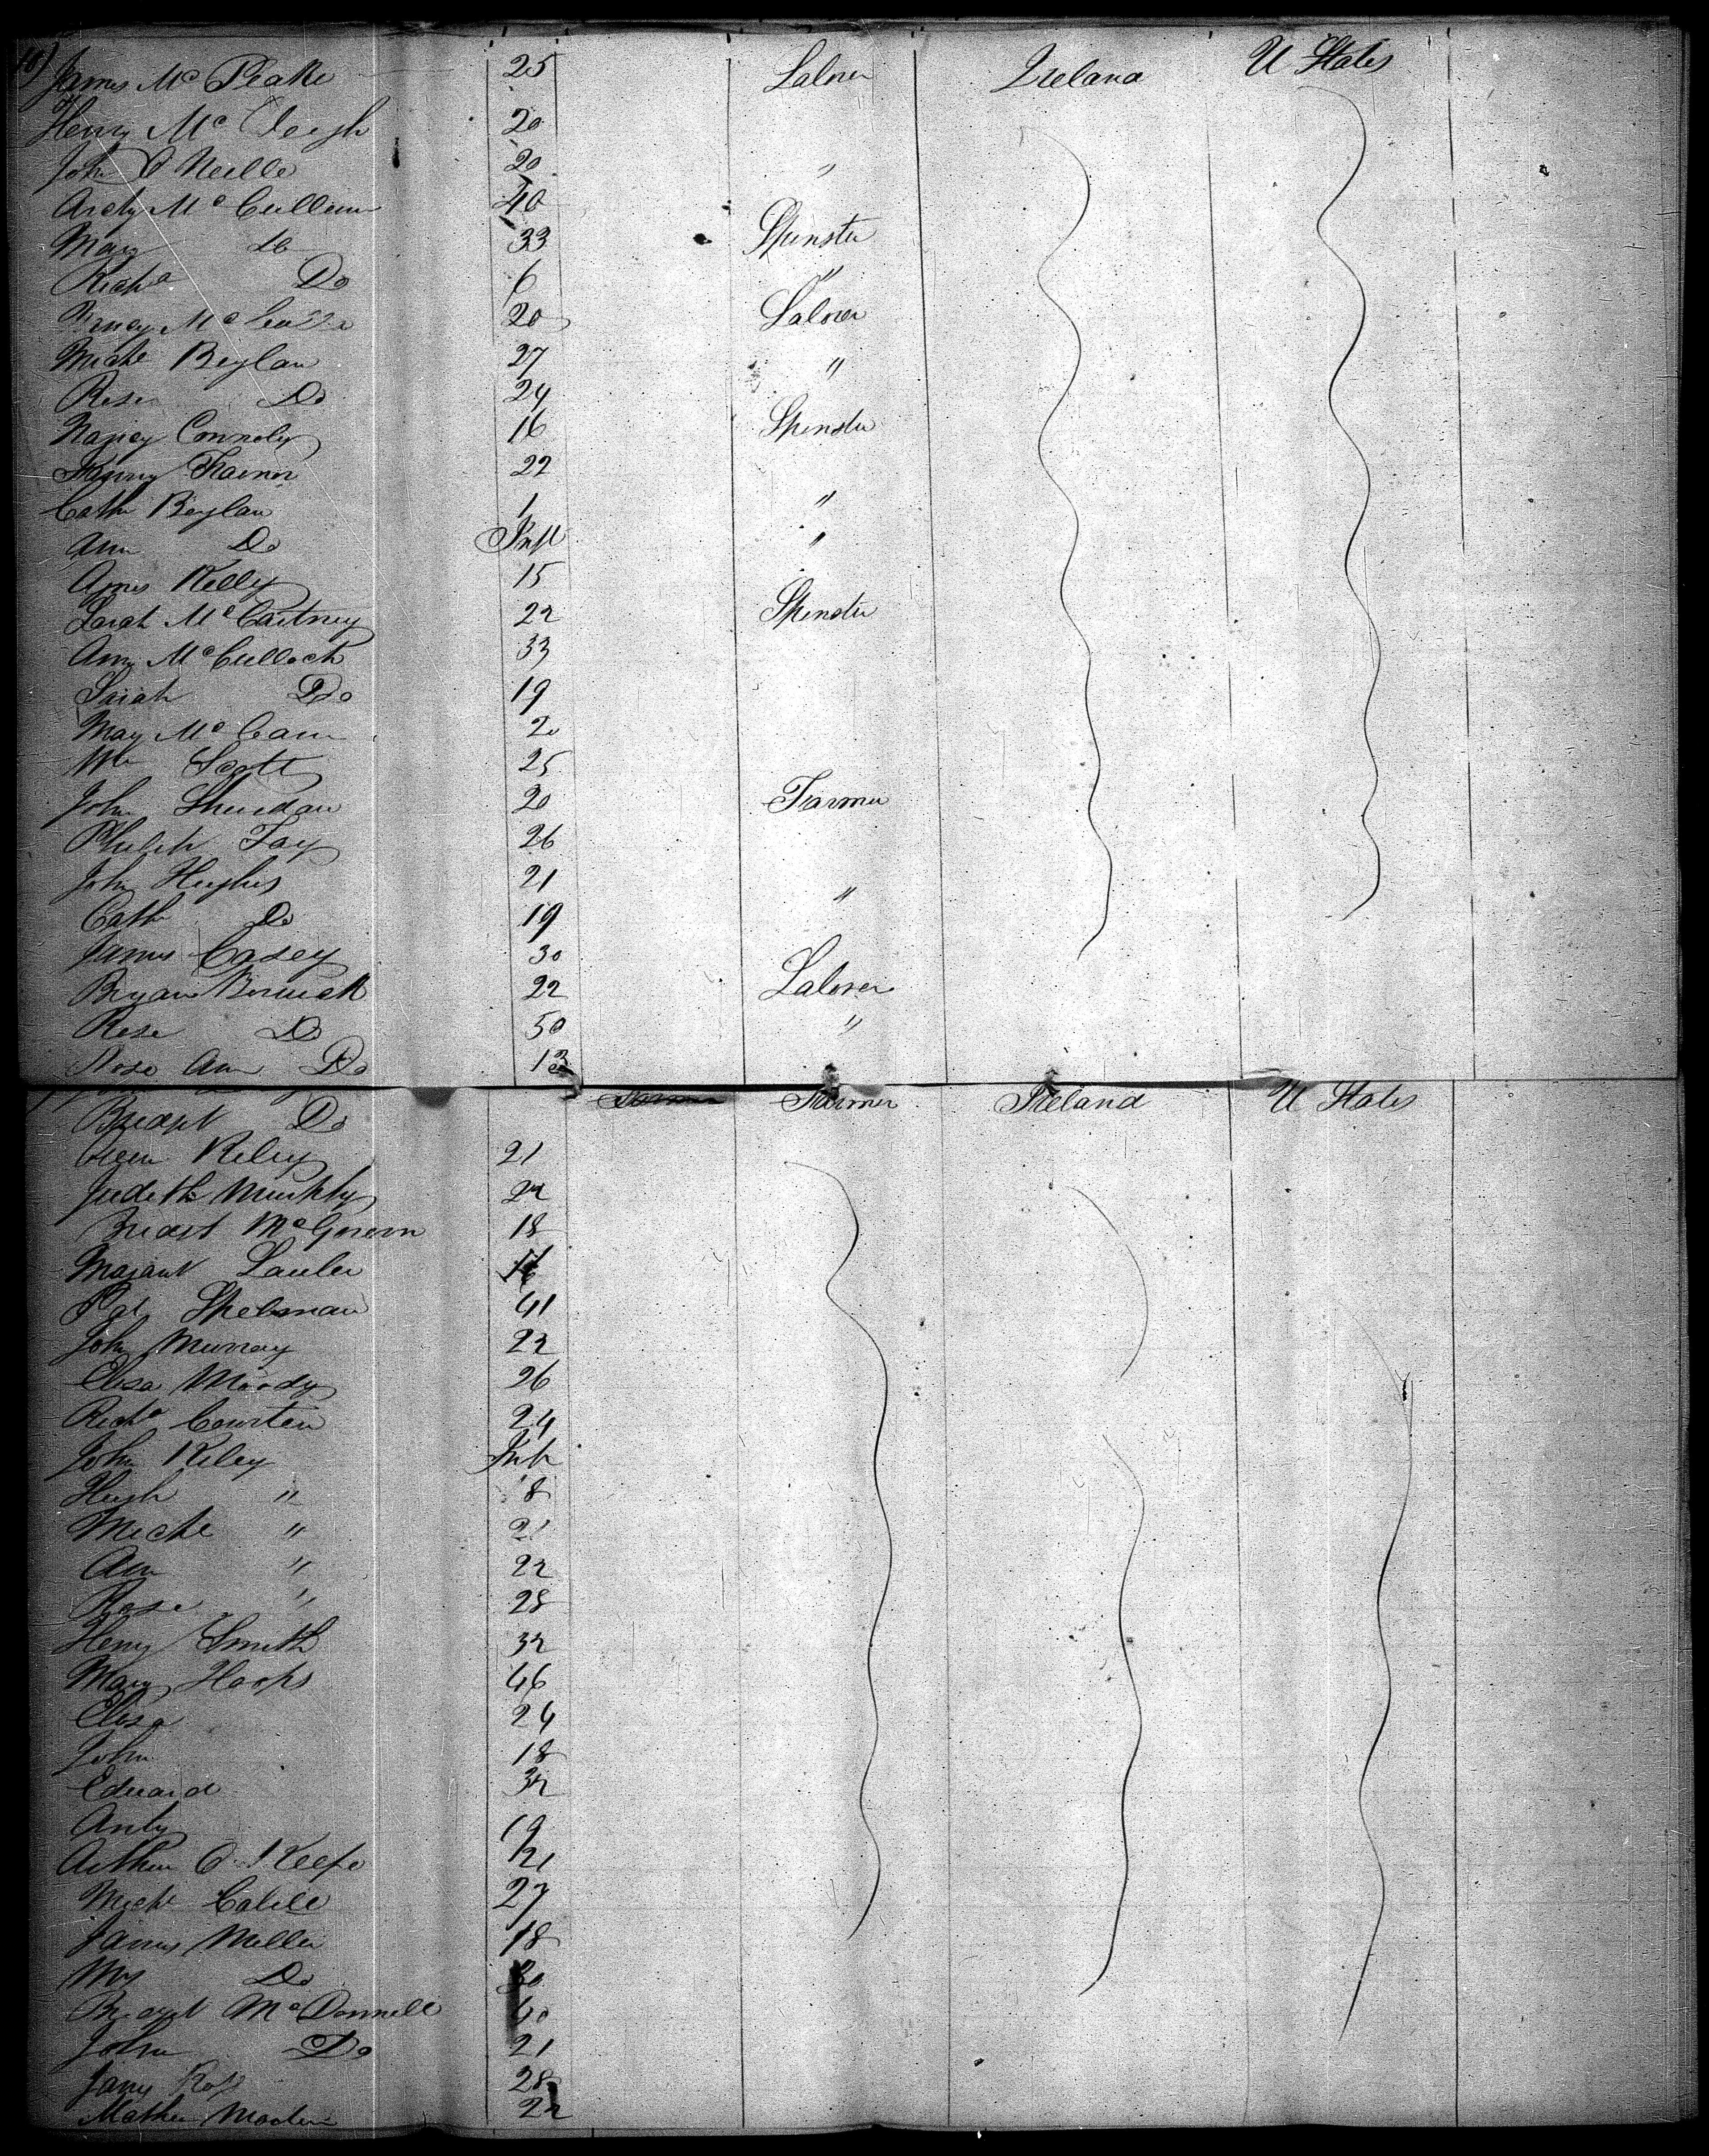 James Mc Peake 25 Labrer Ireland U States
Henry Mc 20
John O Neille 20 "
Archy Mc Cullum 40
Mary do 33 Spinster
Richd Do 6 "
Mc 20 Labrer
Michl Boylan 27 "
Rose Do 24
Nancy Connoly 16 Spinster
Fanny Trainor 22
Cathe Boylan 1 "
Ann Do Inft "
Agnes Kelly 15
Sarah Mc Cartney 22 Spinster
Ann Mc Culloch 33
Sarah Do 19
May Mc Cann 20
Wm Scott 25
John Sheridan 20 Farmer
Philip Fay 26
John Hughes 21 "
Cath Do 19
James Casey 30
Bryan 22 Labrer
Rose Do 50 "
Rose Ann Do 13
Bridgt Do Farmer Farmer Ireland U States
Riley 21
Judith Murphy 22
Bridgt Mc Govern 18
Margaret
Pat Spelman 41
John Murray 22
Elisa Moody 26
Richd 24
John Riley Inft
Hugh " 8
Michl " 21
Ann " 22
Rose " 28
Henry Smith 32
Mary Hoops 46
Elisa 24
John 18
Edward 32
Andy 19
Arthur O Keefe 21
Michl 27
James Miller 18
Mrs Do 30
Bridgt Mc Donnell 40
John Do 21
James Ross 28
Mathew 22